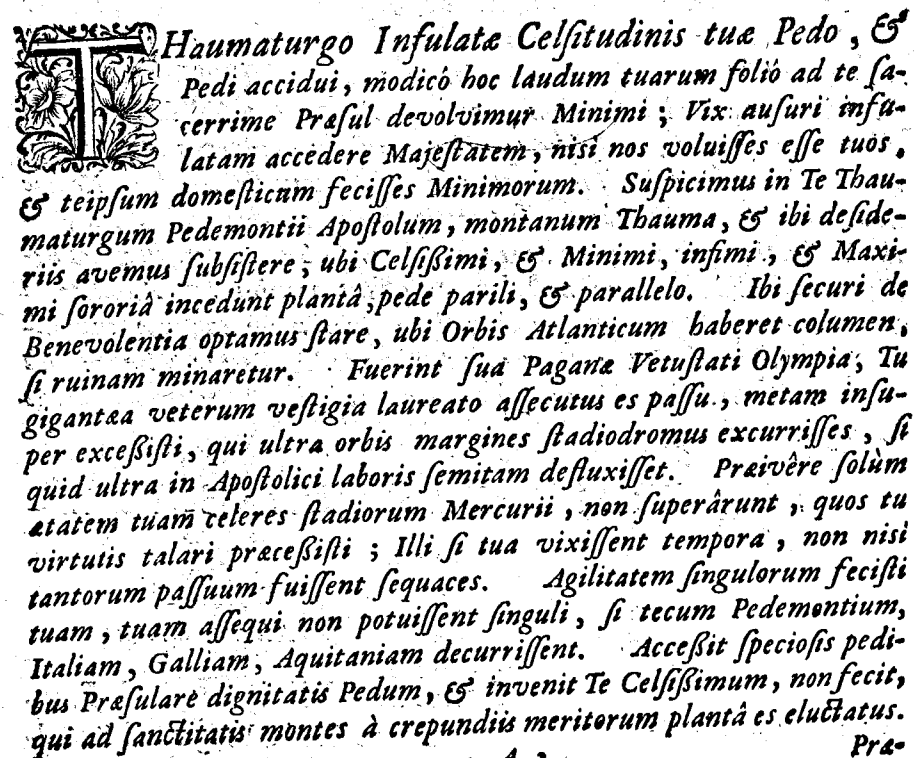 THaumaturgo Infulatæ Celſitudinis tuæ Pedo, &
Pedi accidui, modicô hoc laudum tuarum foliô ad te ſa-
cerrime Præſul devolvimur Minimi; Vix auſuri infu-
latam accedere Majeſtatem, niſi nos voluiſſes eſſe tuos,
& teipſum domeſticum feciſſes Minimorum. Suſpicimus in Te Thau-
maturgum Pedemontii Apoſtolum, montanum Thauma, & ibi deſide-
riis avemus ſubſiſtere, ubi Celſißimi, & Minimi, infimi, & Maxi-
mi ſororiâ incedunt plantâ, pede parili, & parallelo. Ibi ſecuri de
Benevolentia optamus ſtare, ubi Orbis Atlanticum haberet columen,
ſi ruinam minaretur. Fuerint ſua Paganæ Vetuſtati Olympia, Tu
gigantæa veterum veſtigia laureato aſſecutus es paſſu, metam inſu-
per exceßiſti, qui ultra orbis margines ſtadiodromus excurriſſes, ſi
quid ultra in Apoſtolici laboris ſemitam defluxiſſet. Præivêre ſolùm
ætatem tuam celeres ſtadiorum Mercurii, non ſuperârunt, quos tu
virtutis talari præceßiſti; Illi ſi tua vixiſſent tempora, non niſi
tantorum paſſuum fuiſſent ſequaces. Agilitatem ſingulorum feciſti
tuam, tuam aſſequi non potuiſſent ſinguli, ſi tecum Pedemontium,
Italiam, Galliam, Aquitaniam decurriſſent. Acceßit ſpecioſis pedi-
bus Præſulare dignitatis Pedum, & invenit Te Celſißimum, non fecit,
qui ad ſanctitatis montes à crepundiis meritorum plantâ es eluctatus.
Præ-